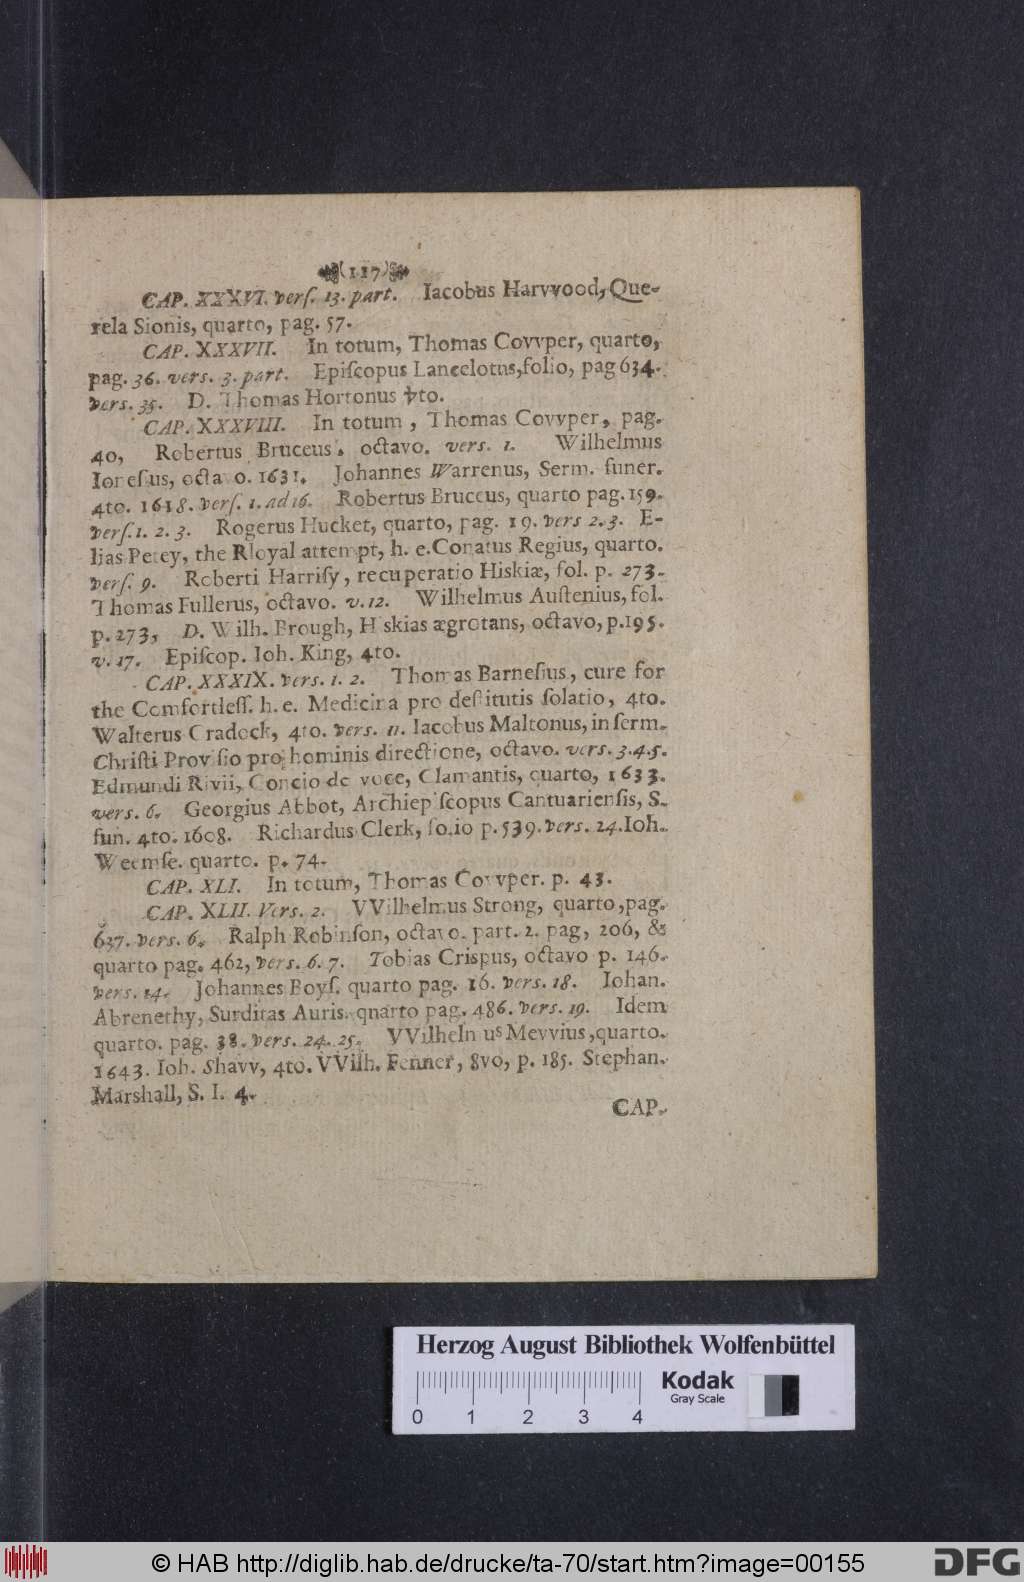 (117)
CAP. XXXVI. verſ. 13. part. Iacobus Harvvood, Que-
rela Sionis, quarto, pag. 57.
CAP. XXXVII. In totum, Thomas Covvper, quarto,
pag. 36. vers. 3. part. Epiſcopus Lancelotus, folio, pag 634.
vers. 35. D. Thomas Hortonus 4to.
CAP. XXXVIII. In totum, Thomas Covvper, pag.
40, Robertus Bruceus, octavo. vers. 1. Wilhelmus
Ioneſius, octavo. 1631. Johannes Warrenus, Serm. funer.
4to. 1618. verſ. 1. ad 16. Robertus Bruceus, quarto pag. 159.
verſ. 1. 2. 3. Rogerus Hucket, quarto, pag. 19. vers 2. 3. E-
lias Petey, the Rloyal attempt, h. e. Conatus Regius, quarto.
verſ. 9. Roberti Harriſy, recuperatio Hiskiæ, fol. p. 273.
Thomas Fullerus, octavo. v. 12. Wilhelmus Auſtenius, fol.
p. 273, D. Wilh. Brough, Hiskias ægrotans, octavo, p. 195.
v. 17. Epiſcop. Ioh. King, 4to.
CAP. XXXIX. vers. 1. 2. Thomas Barneſius, cure for
the Comfortleſſ. h. e. Medicina pro deſtitutis ſolatio, 4to.
Walterus Cradock, 4to. vers. 11. Iacobus Maltonus, in ſerm.
Chriſti Proviſio pro hominis directione, octavo. vers. 3. 4. 5.
Edmundi Rivii, Concio de voce, Clamantis, quarto, 1633.
vers. 6. Georgius Abbot, Archiepiſcopus Cantuarienſis, S.
fun. 4to. 1608. Richardus Clerk, folio p. 539. vers. 24. Ioh.
Weemſe. quarto. p. 74.
CAP. XLI. In totum, Thomas Covvper. p. 43.
CAP. XLII. Vers. 2. VVilhelmus Strong, quarto, pag.
637. vers. 6. Ralph Robinſon, octavo. part. 2. pag, 206, &
quarto pag. 462, vers. 6. 7. Tobias Crispus, octavo p. 146.
vers. 14. Johannes Boyſ. quarto pag. 16. vers. 18. Iohan.
Abrenethy, Surditas Auris. qnarto pag. 486. vers. 19. Idem
quarto. pag. 38. vers. 24. 25. VVilhelmus Mevvius, quarto.
1643. Ioh. Shavv, 4to. VVilh. Fenner, 8vo, p. 185. Stephan.
Marshall, S. I. 4.
CAP.
Herzog August Bibliothek Wolfenbüttel
0 1 2 3 4
Kodak
Gray Scale
© HAB http://diglib.hab.de/drucke/ta-70/start.htm?image=00155
DFG